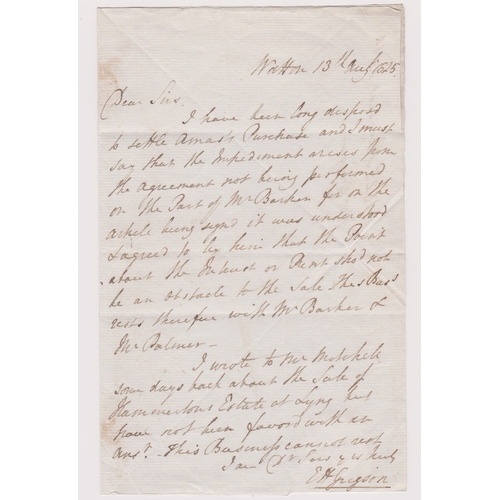 Watton 13th Augt 1825
Dear Sirs
I have been long disposd
to settle Amas's Purchase and I must
say that the Impediment arises from
the agreement not being performed
on the Part of Mr Barker for on the
article being signd it was understood
& agreed to by him that the Point
about the Interest or Rent shod not
be an Obstacle to the Sale This Buss
rests therefore with Mr Barker &
Mr Palmer —
I wrote to Mr Mitchell
some days back about the Sale of
Hammertons Estate at Lyng but
have not been favord with an
Ansr. — This Business cannot rest
I am Dr Sirs yrs truly
E H Grigson